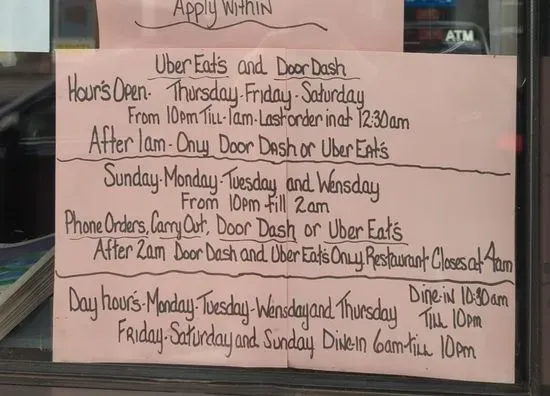 Apply Within
ATM
Uber Eat's and Door Dash
Hour's Open - Thursday - Friday - Saturday
From 10pm Till - 1am - Last order in at 12:30am
After 1am - Only Door Dash or Uber Eat's
Sunday - Monday - Tuesday and Wensday
From 10pm till 2am
Phone Orders, Carry Out, Door Dash or Uber Eat's
After 2am Door Dash and Uber Eat's Only, Restaurant Closes at 4am
Day hour's - Monday - Tuesday - Wensday and Thursday Dine-in 10:30am
Till 10pm
Friday - Saturday and Sunday Dine-In 6am - till 10pm